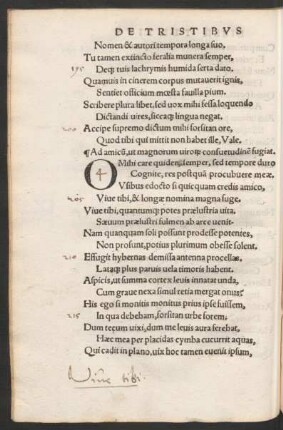 DE TRISTIBVS
Nomen & autori tempora longa suo,
Tu tamen extincto feralia munera semper,
195 Deq; tuis lachrymis humida serta dato.
Quamuis in cinerem corpus mutauerit ignis,
Sentiet officium mœsta fauilla pium.
Scribere plura libet, sed uox mihi fessa loquendo
Dictandi uires, siccaq; lingua negat.
200 Accipe supremo dictum mihi forsitan ore,
Quod tibi qui mittit non habet ille, Vale.
¶ Ad amicũ, ut magnorum uirorũ consuetudinẽ fugiat.
O Mihi care quidem semper, sed tempore duro
4 Cognite, res postquã procubuere meæ.
Vsibus edocto si quicquam credis amico,
205 Viue tibi, & longe nomina magna fuge.
Viue tibi, quantumq; potes prælustria uita,
Sæuum prælustri fulmen ab arce uenit.
Nam quanquam soli possunt prodesse potentes,
Non prosunt, potius plurimum obesse solent.
210 Effugit hybernas demissa antenna procellas,
Lataq; plus paruis uela timoris habent.
Aspicis, ut summa cortex leuis innatat unda,
Cum graue nexa simul retia mergat onus?
His ego si monitis monitus prius ipse fuissem,
215 In qua debebam, forsitan urbe forem.
Dum tecum uixi, dum me leuis aura ferebat,
Hæc mea per placidas cymba cucurrit aquas,
Qui cadit in plano, uix hoc tamen euenit ipsum,
Viue tibi.